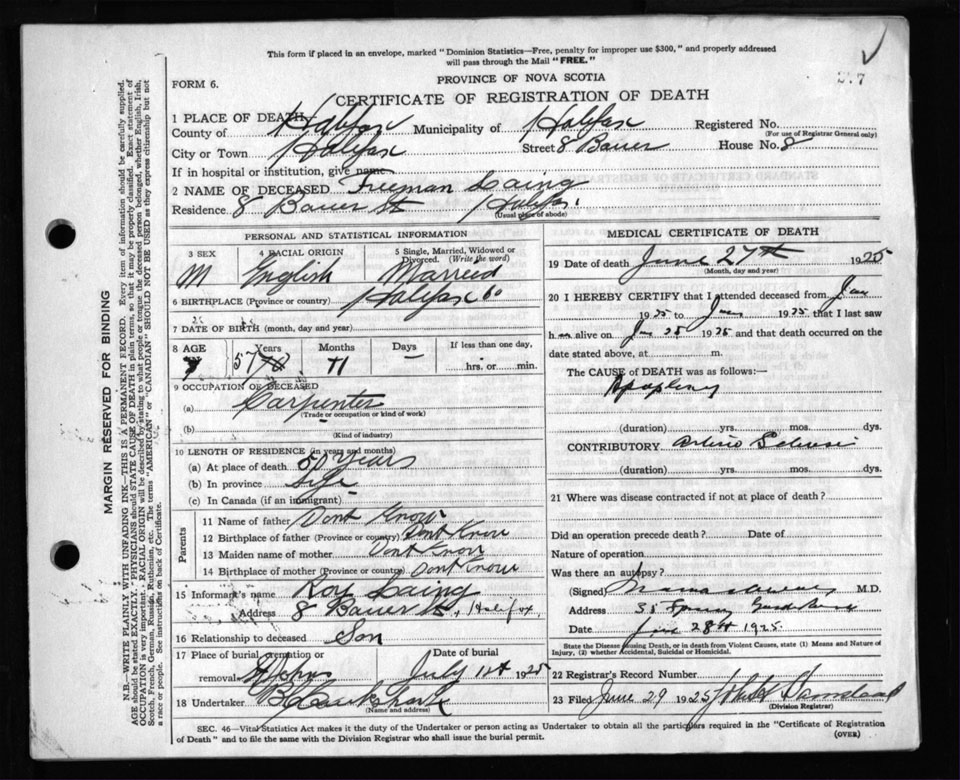 This form if placed in an envelope, marked "Dominion Statistics—Free, penalty for improper use $300," and properly addressed
will pass through the Mail "FREE."
FORM 6.
PROVINCE OF NOVA SCOTIA
CERTIFICATE OF REGISTRATION OF DEATH
1 PLACE OF DEATH
County of Halifax Municipality of Halifax Registered No.
(For use of Registrar General only)
City or Town Halifax Street 8 Bauer House No. 8
If in hospital or institution, give name
2 NAME OF DECEASED Freeman Laing
Residence 8 Bauer St Halifax
(Usual place of abode)
PERSONAL AND STATISTICAL INFORMATION
3 SEX M
4 RACIAL ORIGIN English
5 Single, Married, Widowed or Divorced. (Write the word) Married
6 BIRTHPLACE (Province or country) Halifax Co
7 DATE OF BIRTH (month, day and year)
8 AGE Years 57 Months 11 Days If less than one day, hrs. or min.
9 OCCUPATION OF DECEASED
(a) Carpenter
(Trade or occupation or kind of work)
(b)
(Kind of industry)
10 LENGTH OF RESIDENCE (in years and months)
(a) At place of death 50 years
(b) In province Life
(c) In Canada (if an immigrant)
Parents
11 Name of father Dont Know
12 Birthplace of father (Province or country) Dont Know
13 Maiden name of mother Dont Know
14 Birthplace of mother (Province or country) Dont Know
15 Informant's name Roy Laing
Address 8 Bauer St, Halifax
16 Relationship to deceased Son
17 Place of burial, cremation or removal
Date of burial July 1st 1925
18 Undertaker
(Name and address)
MEDICAL CERTIFICATE OF DEATH
19 Date of death June 27th 1925
(Month, day and year)
20 I HEREBY CERTIFY that I attended deceased from Jan
1925 to June 1925 that I last saw
h im alive on Jun 25 1925 and that death occurred on the
date stated above, at m.
The CAUSE of DEATH was as follows:—
Apoplexy
(duration) yrs. mos. dys.
CONTRIBUTORY Arterio Sclerosis
(duration) yrs. mos. dys.
21 Where was disease contracted if not at place of death?
Did an operation precede death? Date of
Nature of operation
Was there an autopsy?
(Signed) M.D.
Address 35 Spring Garden Road
Date June 28th 1925.
State the Disease Causing Death, or in death from Violent Causes, state (1) Means and Nature of
Injury, (2) whether Accidental, Suicidal or Homicidal.
22 Registrar's Record Number
23 Filed June 29 1925
(Division Registrar)
SEC. 46—Vital Statistics Act makes it the duty of the Undertaker or person acting as Undertaker to obtain all the particulars required in the "Certificate of Registration
of Death" and to file the same with the Division Registrar who shall issue the burial permit.
(OVER)
MARGIN RESERVED FOR BINDING
N.B.—WRITE PLAINLY WITH UNFADING INK—THIS IS A PERMANENT RECORD. Every item of information should be carefully supplied.
AGE should be stated EXACTLY. PHYSICIANS should STATE CAUSE OF DEATH in plain terms, so that it may be properly classified. Exact statement of
OCCUPATION is very important. RACIAL ORIGIN will be described by stating to what people or tongue the deceased person belonged, whether English, Irish,
Scotch, French, German, Russian, Ruthenian, etc. The terms "AMERICAN" or "CANADIAN" SHOULD NOT BE USED as they express citizenship but not
a race or people. See instructions on back of Certificate.